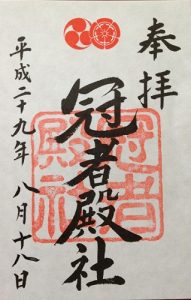 奉拝
冠者殿社
冠者殿社
平成二十九年 八月十八日